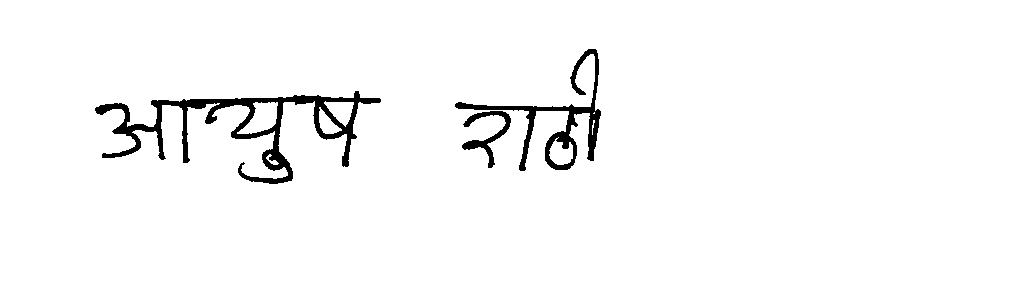 आयुष राठी